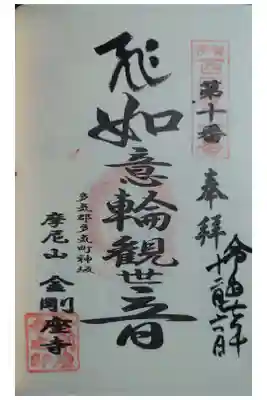 第十番
奉拜
令和七年
十二月六日
如意輪観世音
多気郡多気町神坂
摩尼山 金剛座寺